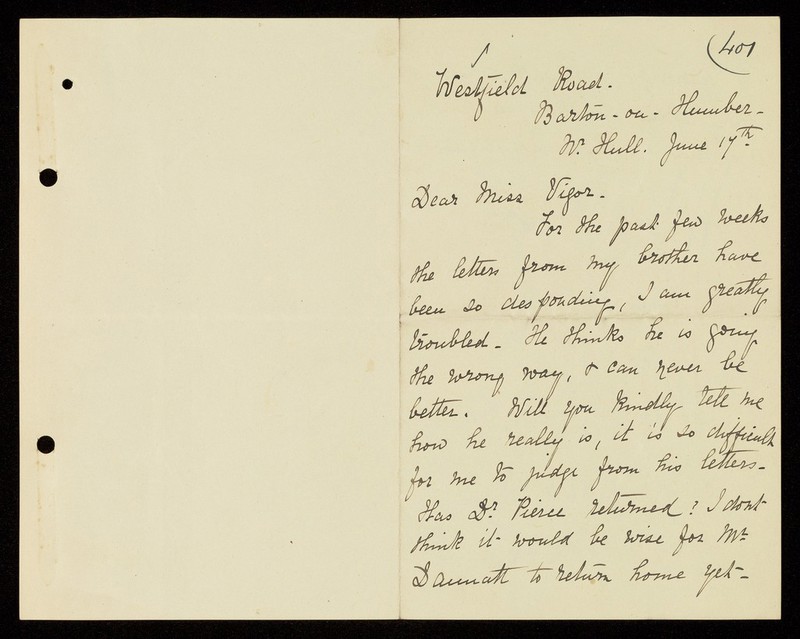 401
Westfield Road.
Barton-on-Humber-
Nr. Hull. June 17th
Dear Miss Vigor-
For the past few weeks
the letters from my brother have
been so desponding, I am greatly
troubled- He thinks he is going
the wrong way, & can never be
better. Will you kindly tell me
how he really is, it is so difficult
for me to judge from his letters-
Has Dr. Pierce returned? I dont
think it would be wise for Mr
Dannatt to return home yet-